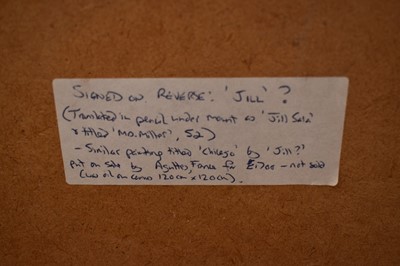 SIGNED ON REVERSE: 'JILL' ?
(Translated in pencil under mount as 'Jill Sala'
& titled 'Mo. Millar', 52)
- Similar painting titled 'Chicago' by 'Jill?'
put on sale by Aguttes, France for £1700 - not sold
(was oil on canvas 120cm x 120cm).